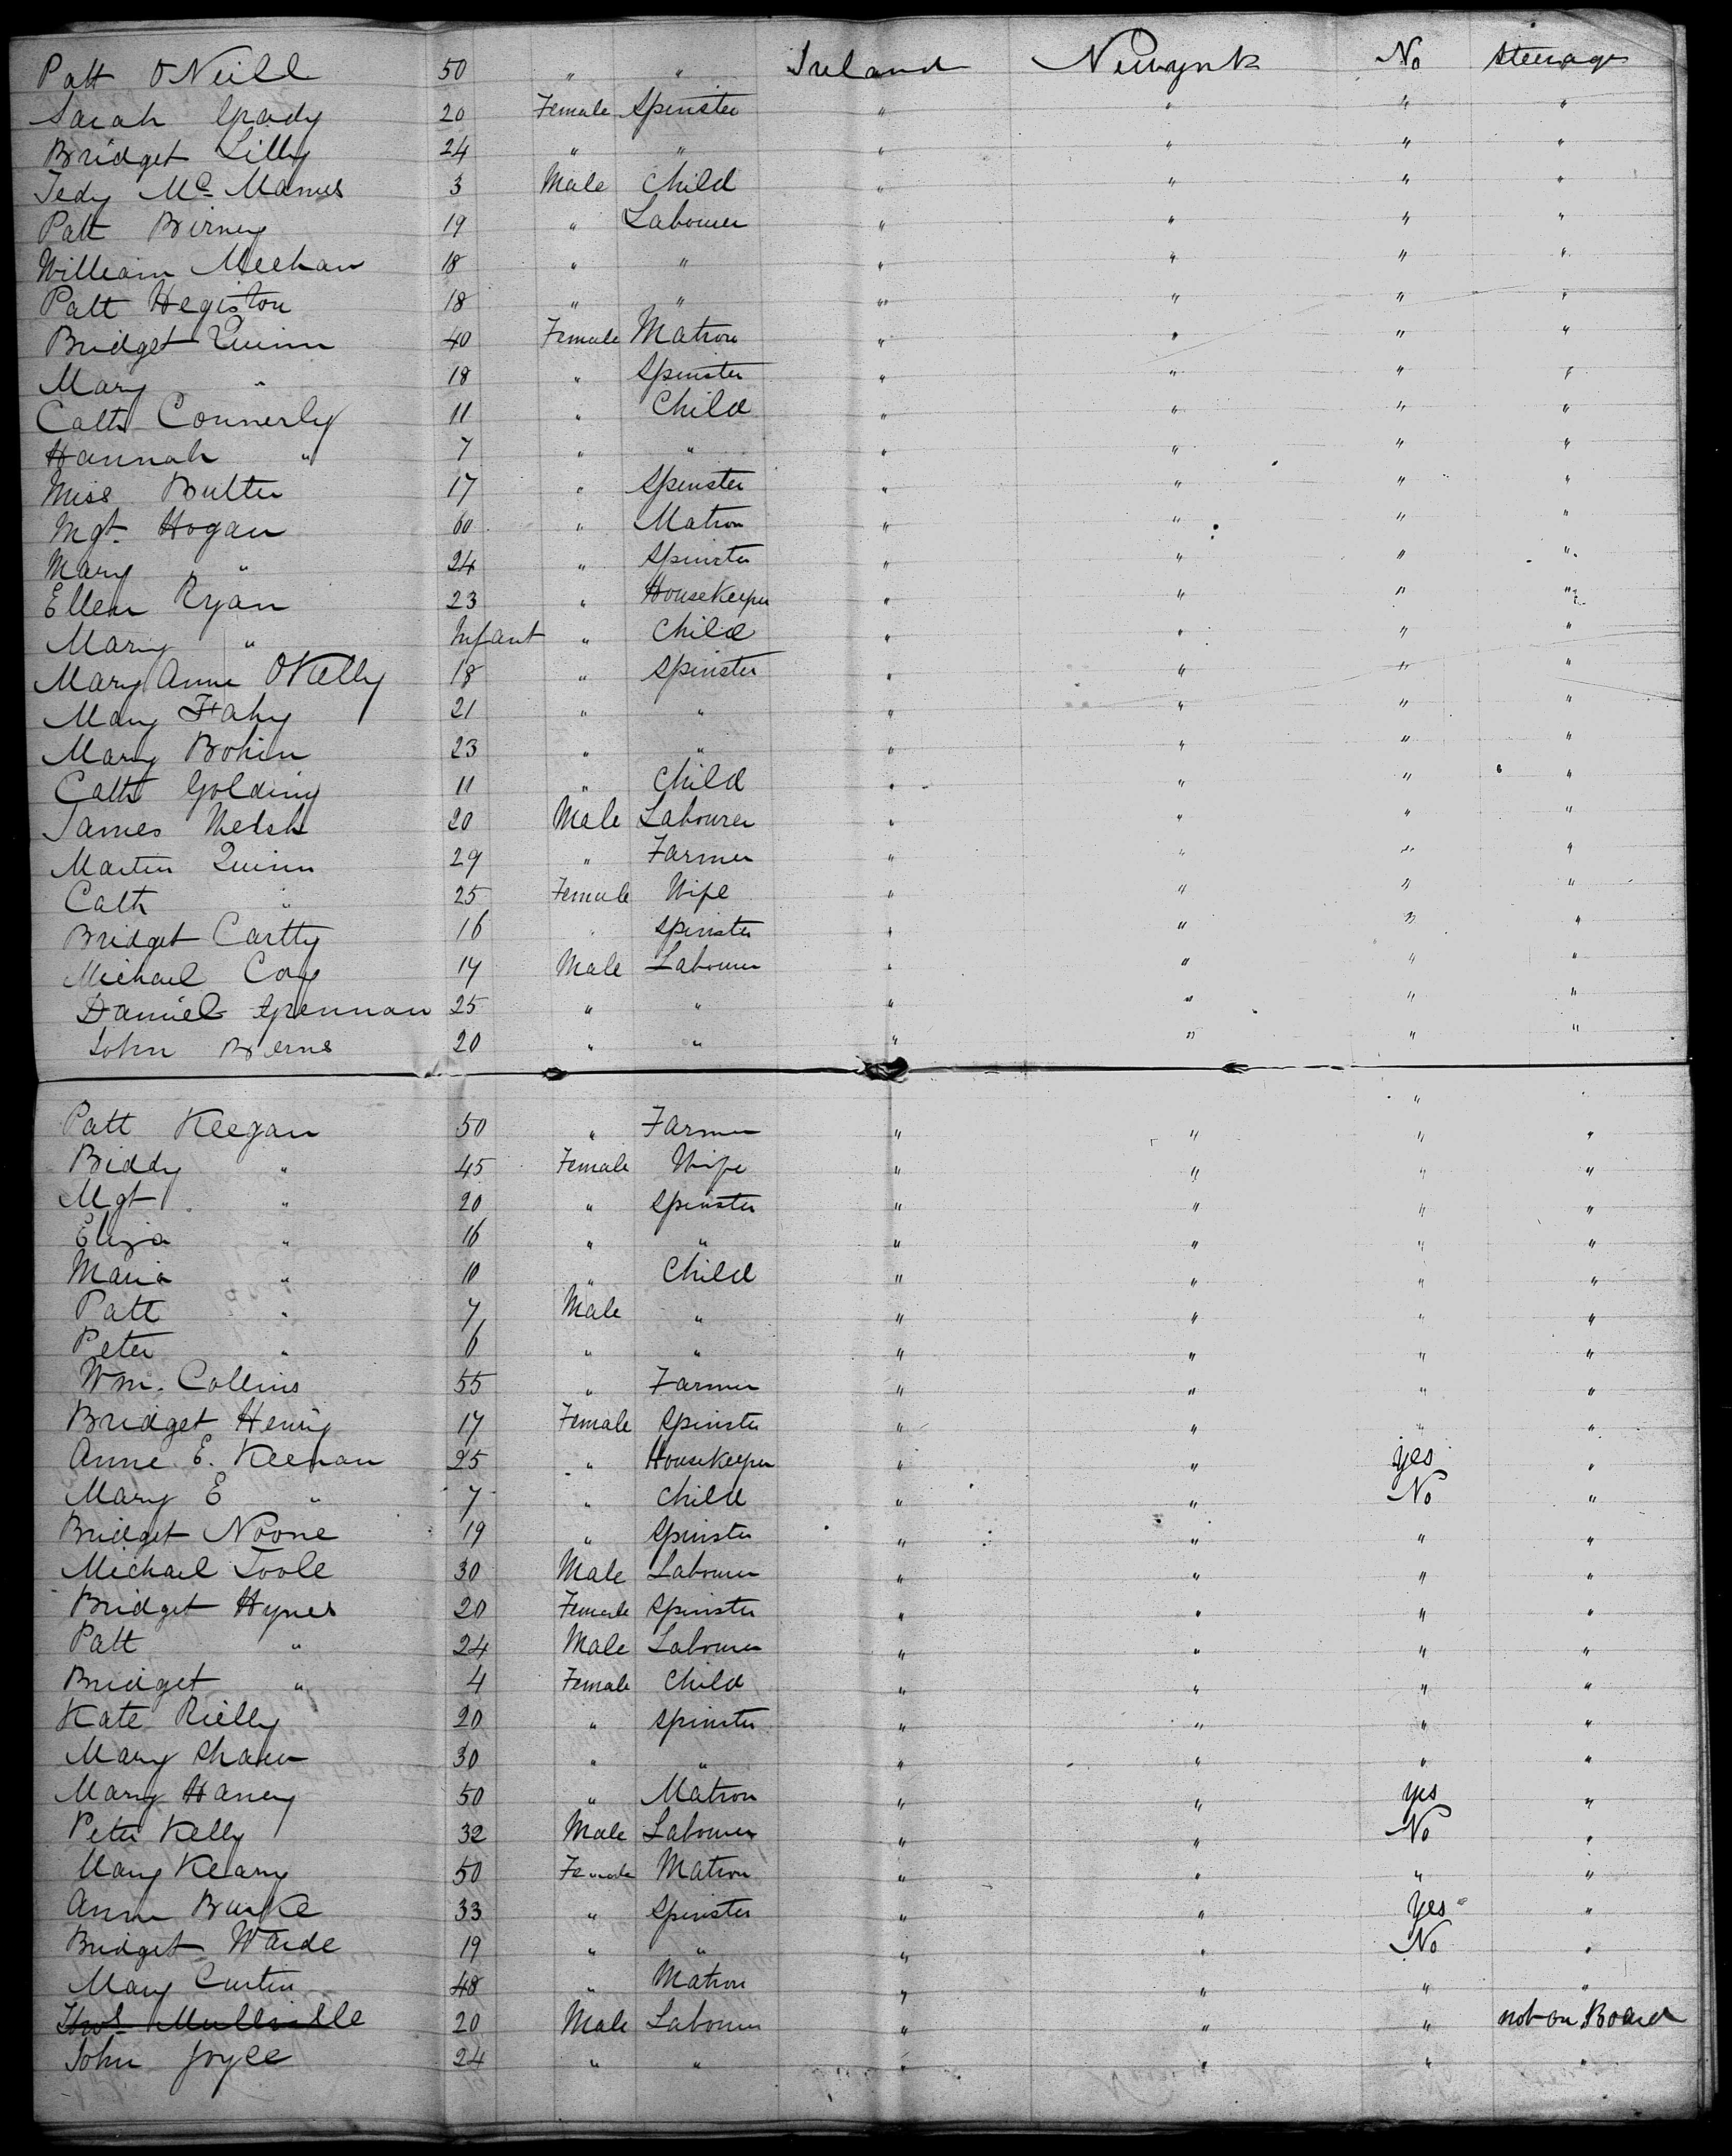 Patt O'Neill 50 " " Ireland Newyork No Steerage
Sarah Grady 20 Female Spinster " " " "
Bridget Lilly 24 " " " " " "
Tedy McManus 3 Male Child " " " "
Patt Birney 19 " Labourer " " " "
William Meehan 18 " " " " " "
Patt Hegiston 18 " " " " " "
Bridget Quinn 40 Female Matron " " " "
Mary " 18 " Spinster " " " "
Cath Connerly 11 " Child " " " "
Hannah " 7 " " " " " "
Miss Butler 17 " Spinster " " " "
Mgt. Hogan 60 " Matron " " " "
Mary " 24 " Spinster " " " "
Ellen Ryan 23 " HouseKeeper " " " "
Mary " Infant " Child " " " "
Mary Anne OKelly 18 " Spinster " " " "
Mary Fahy 21 " " " " " "
Mary Bohin 23 " " " " " "
Cath Golding 11 " Child " " " "
James Welsh 20 Male Labourer " " " "
Martin Quinn 29 " Farmer " " " "
Cath " 25 Female Wife " " " "
Bridget Cartty 16 " Spinster " " " "
Michael Coy 14 Male Labourer " " " "
Daniel Grennan 25 " " " " " "
John Berns 20 " " " " " "
"
Patt Keegan 50 " Farmer " " " "
Biddy " 45 Female Wife " " " "
Mgt " 20 " Spinster " " " "
Eliza " 16 " " " " " "
Maria " 10 " Child " " " "
Patt " 7 Male " " " " "
Peter " 6 " " " " " "
Wm. Collins 55 " Farmer " " " "
Bridget Henry 17 Female Spinster " " " "
Anne E. Keenan 25 " HouseKeeper " " yes "
Mary E " 7 " Child " " No "
Bridget Noone 19 " Spinster " " " "
Michael Toole 30 Male Labourer " " " "
Bridget Hynes 20 Female Spinster " " " "
Patt " 24 Male Labourer " " " "
Bridget " 4 Female Child " " " "
Kate Rielly 20 " Spinster " " " "
Mary Shaw 30 " " " " " "
Mary Haney 50 " Matron " " yes "
Peter Kelly 32 Male Labourer " " No "
Mary Kearny 50 Female Matron " " " "
Anne Burke 33 " Spinster " " Yes "
Bridget Warde 19 " " " " No "
Mary Curtin 48 " Matron " " " "
Thos. Mullville 20 Male Labourer " " " not on Board
John Joyce 24 " " " " " "